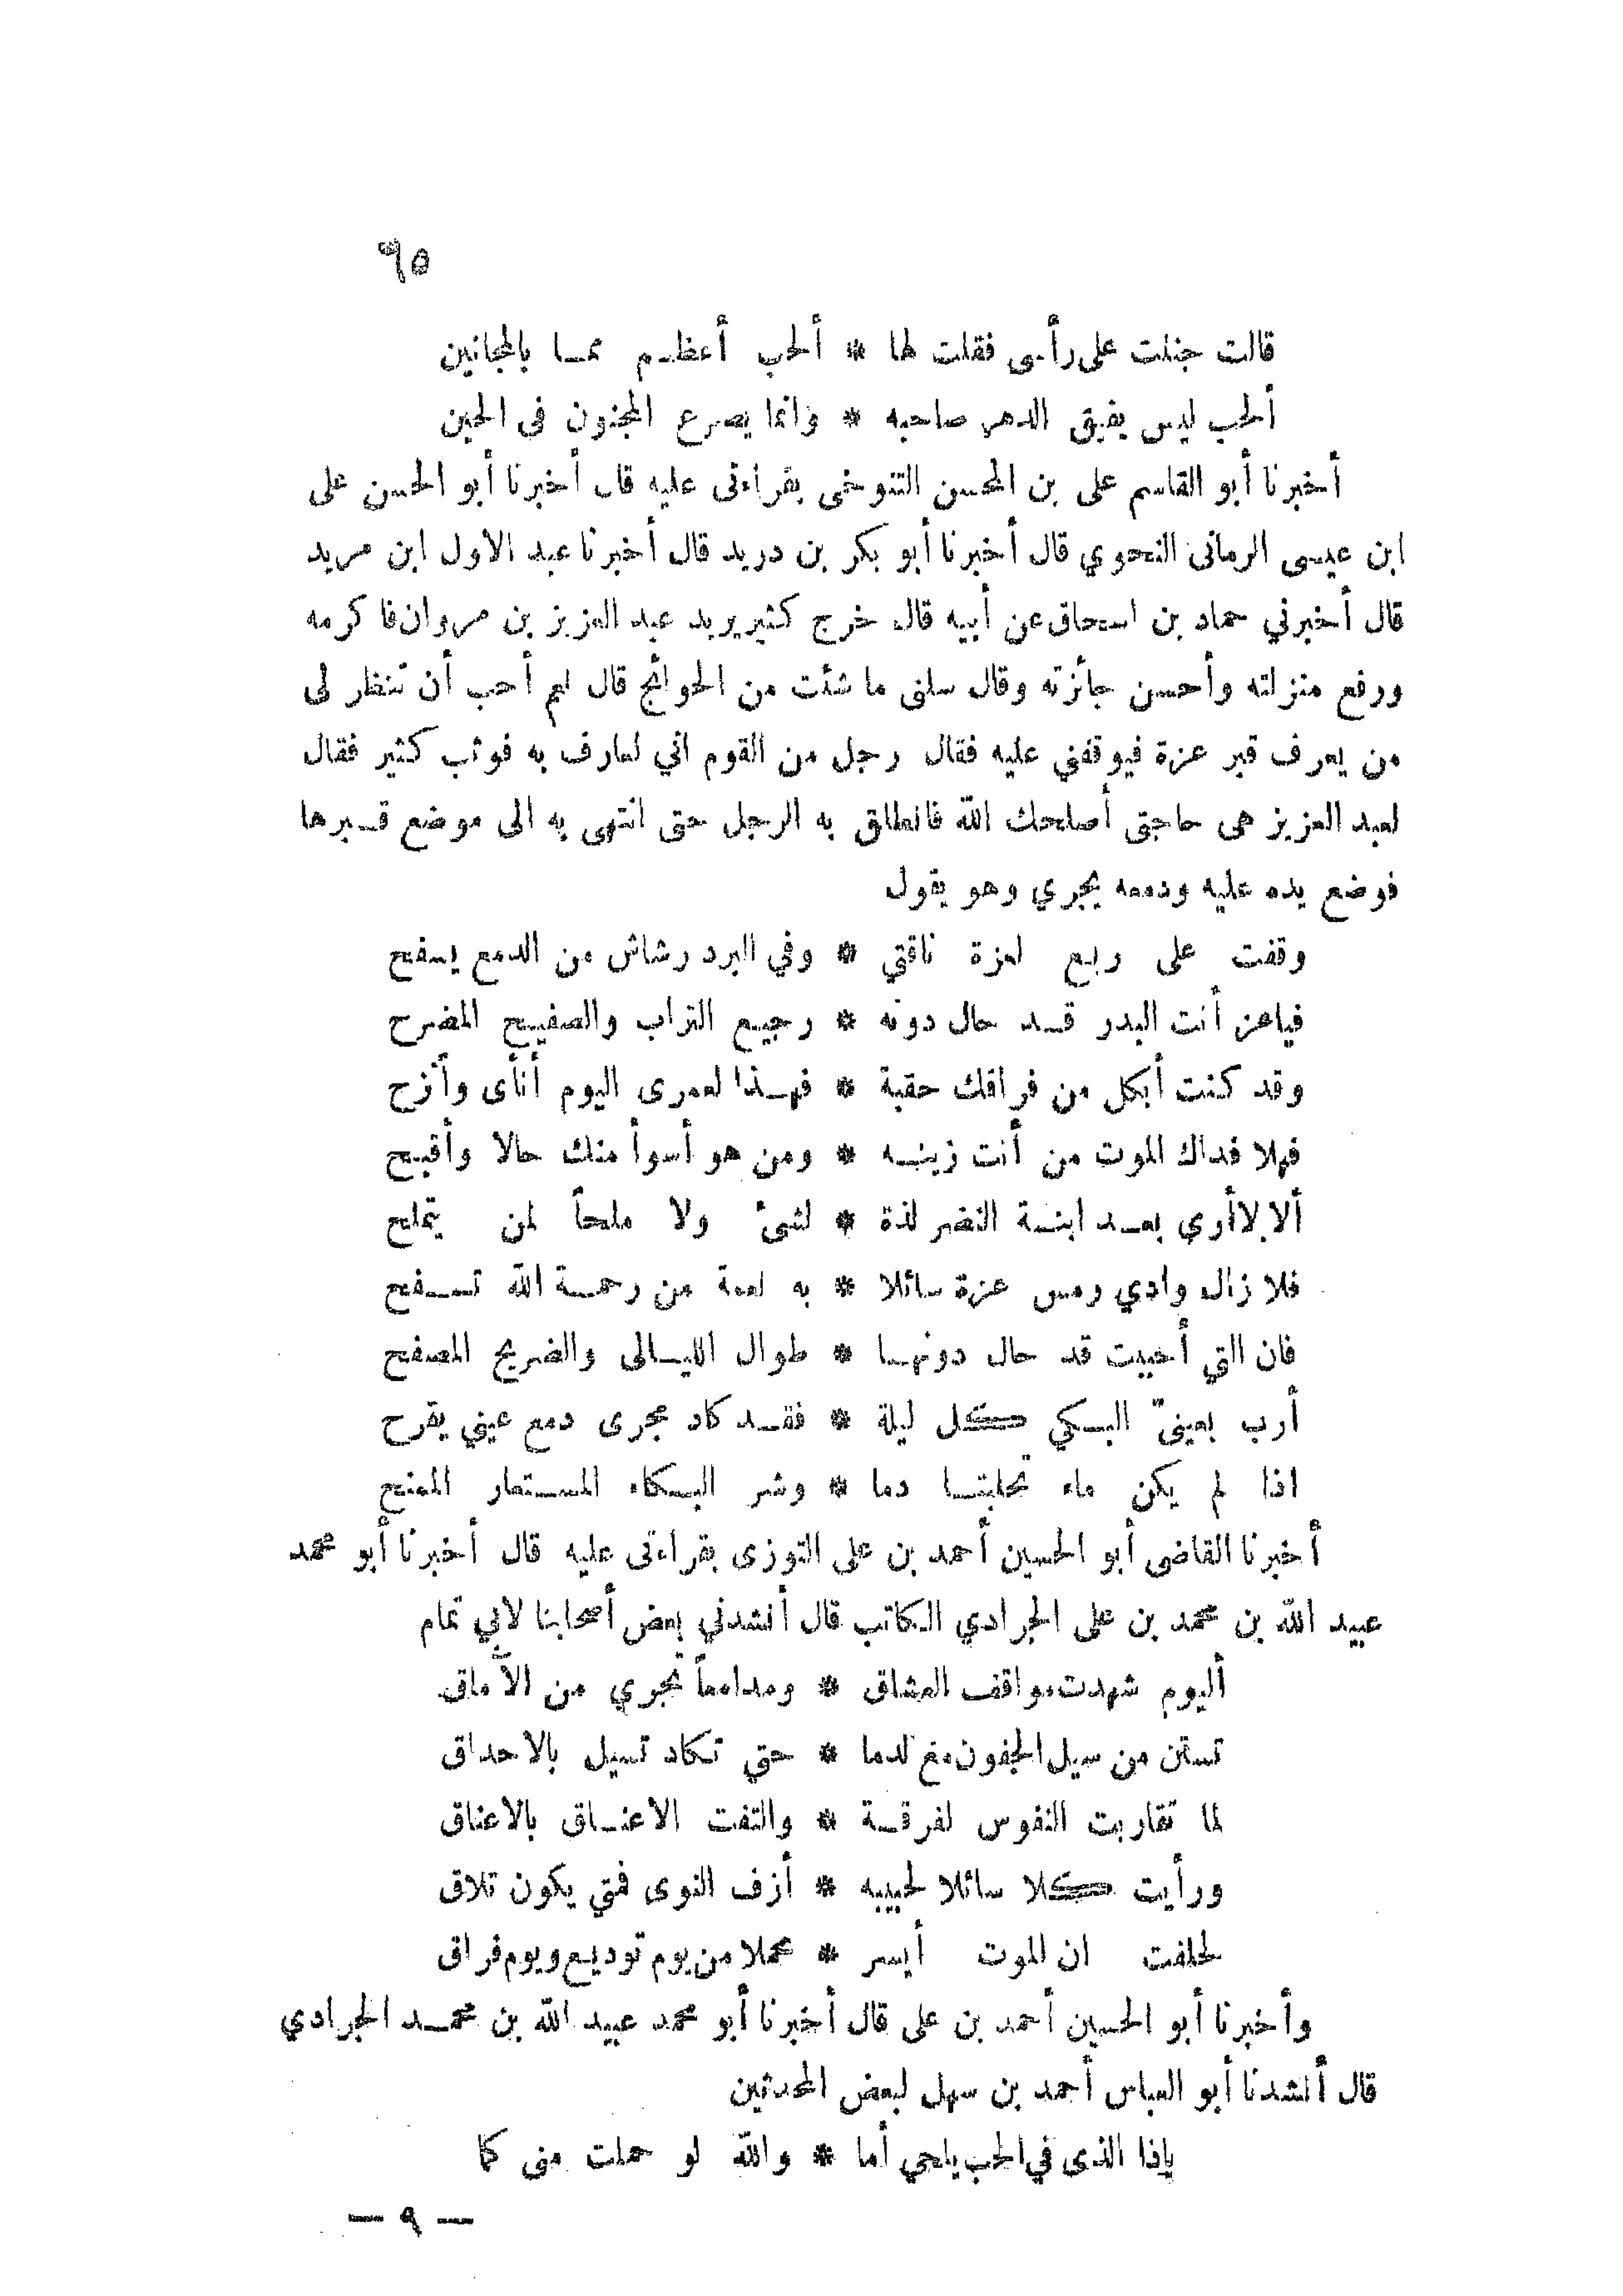 ٩٥
قالت جننت على رأسى فقلت لها * ألحب أعظم مما بالمجانين
ألحب ليس يفيق الدهر صاحبه * وانما يصرع المجنون فى الحين
أخبرنا أبو القاسم على بن المحسن التنوخى بقراءتى عليه قال أخبرنا أبو الحسن على
ابن عيسى الرمانى النحوي قال أخبرنا أبو بكر بن دريد قال أخبرنا عبد الاول ابن مريد
قال أخبرني حماد بن اسحاق عن أبيه قال خرج كثير يريد عبد العزيز بن مروان فا كرمه
ورفع منزلته وأحسن جائزته وقال سلنى ما شئت من الحوائج قال نعم أحب أن تنظر لى
من يعرف قبر عزة فيوقفني عليه فقال رجل من القوم اني لعارف به فوثب كثير فقال
لعبد العزيز هى حاجتى أصلحك الله فانطلق به الرجل حتى انتهى به الى موضع قبرها
فوضع يده عليه ودمعه يجري وهو يقول
وقفت على ربع لعزة ناقتي * وفي البرد رشاش من الدمع يسفح
فياعز أنت البدر قد حال دونه * رجيع التراب والصفيح المضرح
وقد كنت أبكى من فراقك حقبة * فهذا لعمرى اليوم أنأى وأنزح
فهلا فداك الموت من أنت زينه * ومن هو أسوأ منك حالا وأقبح
ألا لاأرى بعد ابنة النضر لذة * لشئ ولا ملحاً لمن يتملح
فلا زال وادي رمس عزة سائلا * به نعمة من رحمة الله تسفح
فان التي أحببت قد حال دونها * طوال الليالى والضريح المصفح
أرب بعينىّ البكي كل ليلة * فقد كاد مجرى دمع عيني يقرح
اذا لم يكن ماء تحلبتا دما * وشر البكاء المستعار الممنح
أخبرنا القاضى أبو الحسين أحمد بن على التوزى بقراءتى عليه قال أخبرنا أبو محمد
عبيد الله بن محمد بن على الجرادي الكاتب قال أنشدني بعض أصحابنا لابي تمام
أليوم شهدت مواقف العشاق * ومدامعاً تجري من الآماق
تستن من سيل الجفون مع لدما * حتي تكاد تسيل بالاحداق
لما تقاربت النفوس لفرقة * والتفت الاعناق بالاعناق
ورأيت كلا سائلا لحبيبه * أزف النوى فمتي يكون تلاق
لحلفت ان الموت أيسر * محملا من يوم توديع ويوم فراق
وأخبرنا أبو الحسين أحمد بن على قال أخبرنا أبو محمد عبيد الله بن محمد الجرادي
قال أنشدنا أبو العباس أحمد بن سهل لبعض المحدثين
ياذا الذى في الحب يلحي أما * والله لو حملت منى كما
— ٩ —